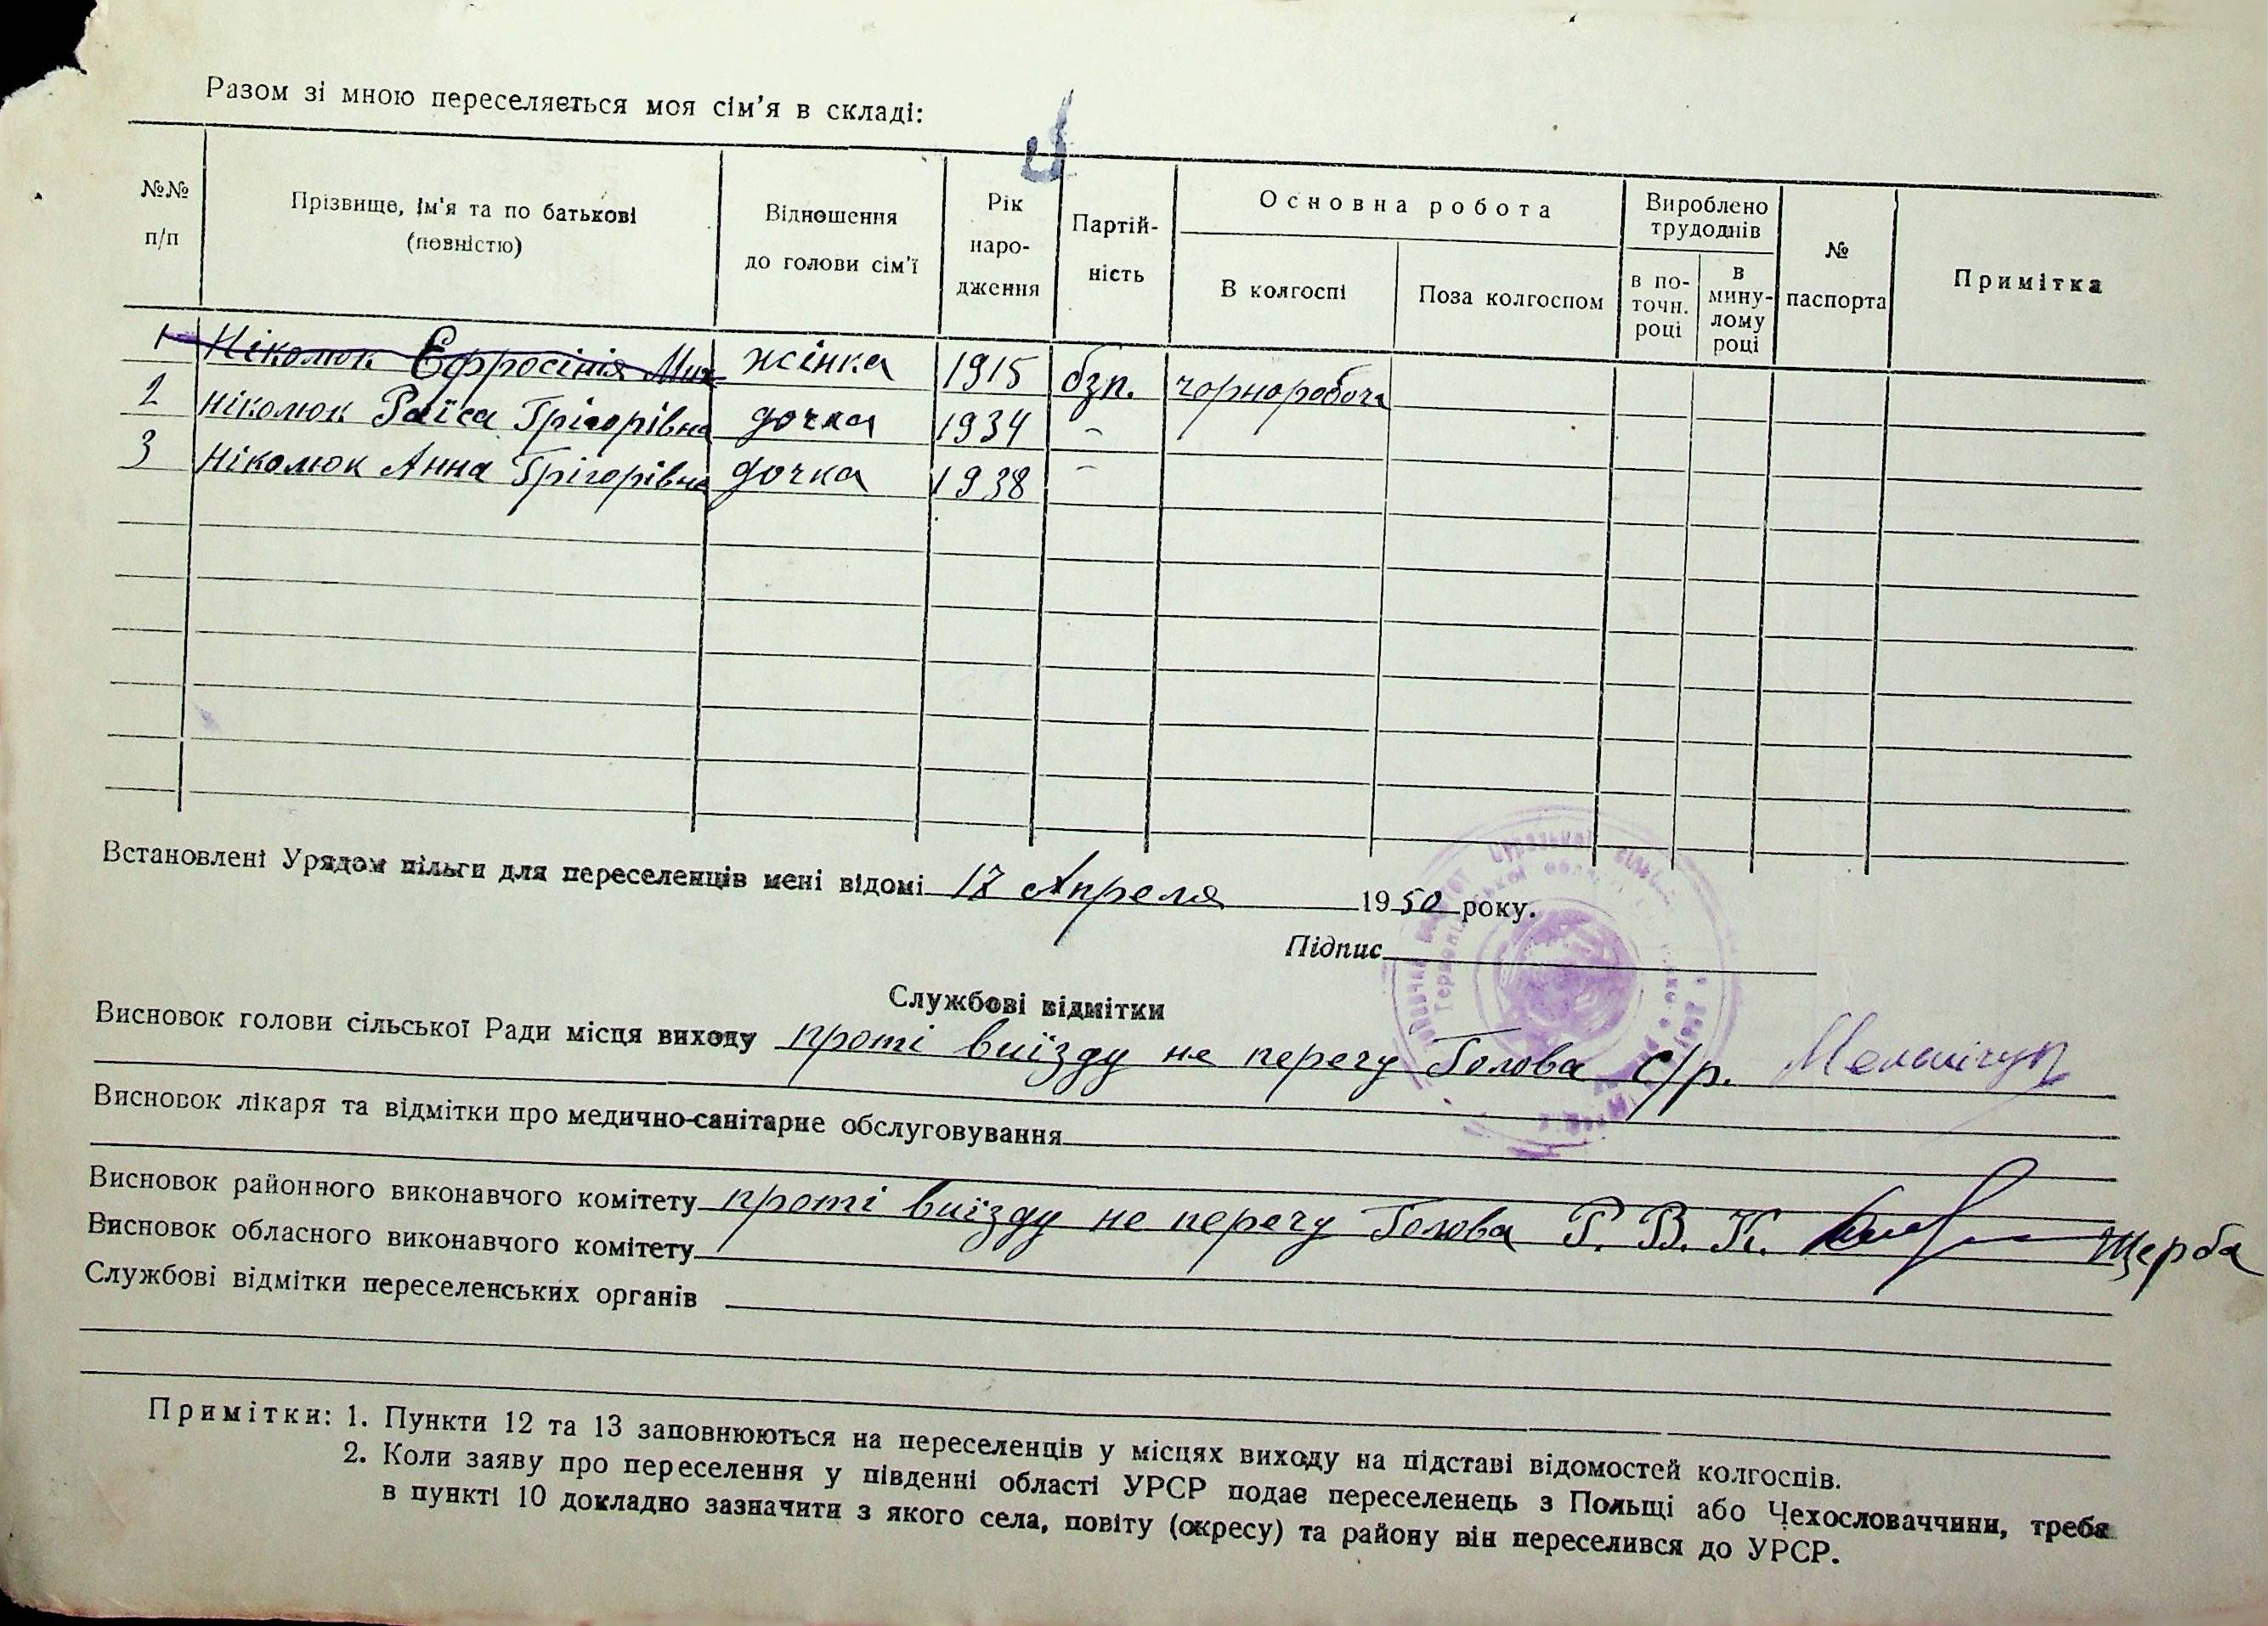 Разом зі мною переселяється моя сім'я в складі:
№№ п/п
Прізвище, ім'я та по батькові (повністю)
Відношення до голови сім'ї
Рік наро-дження
Партій-ність
Основна робота
В колгоспі
Поза колгоспом
Вироблено трудоднів
в по-точн. році
в мину-лому році
№ паспорта
Примітка
1 Ніколюк Ефросінія Мих жінка 1915 бзп. чорнороботі
2 Ніколюк Раїса Грігорівна дочка 1934 -
3 Ніколюк Анна Грігорівна дочка 1938 -
Встановлені Урядом пільги для переселенців мені відомі 17 Апреля 1950 року.
Підпис
Службові відмітки
Висновок голови сільської Ради місця виходу проті виїзду не перечу Голова с/р.
Висновок лікаря та відмітки про медично-санітарне обслуговування
Висновок районного виконавчого комітету проті виїзду не перечу Голова Р. В. К. Щерба
Висновок обласного виконавчого комітету
Службові відмітки переселенських органів
Примітки: 1. Пункти 12 та 13 заповнюються на переселенців у місцях виходу на підставі відомостей колгоспів.
2. Коли заяву про переселення у південні області УРСР подає переселенець з Польщі або Чехословаччини, треба
в пункті 10 докладно зазначити з якого села, повіту (окресу) та району він переселився до УРСР.